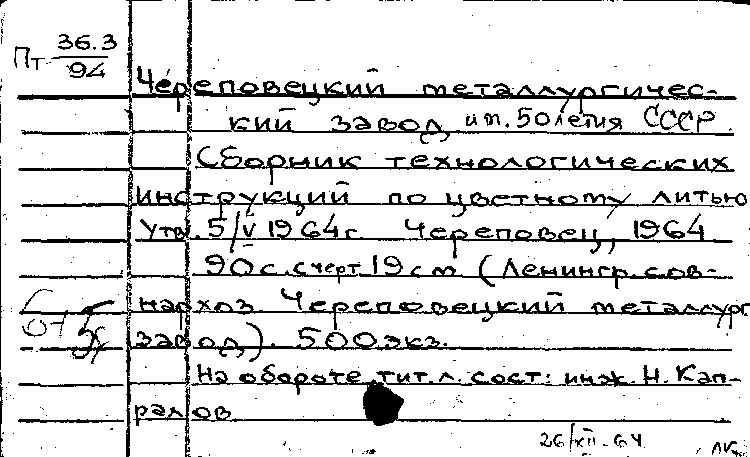 Пт 36.3
94
Череповецкий металлургичес-
кий завод им. 50летия СССР.
Сборник технологических
инструкций по цветному литью
Утв. 5/V 1964г. Череповец, 1964
90с. с черт 19см (Ленингр. сов-
нархоз. Череповецкий металлург
завод). 500экз.
На обороте тит. л. сост: инж. Н. Кап-
ралов
26/XII-64